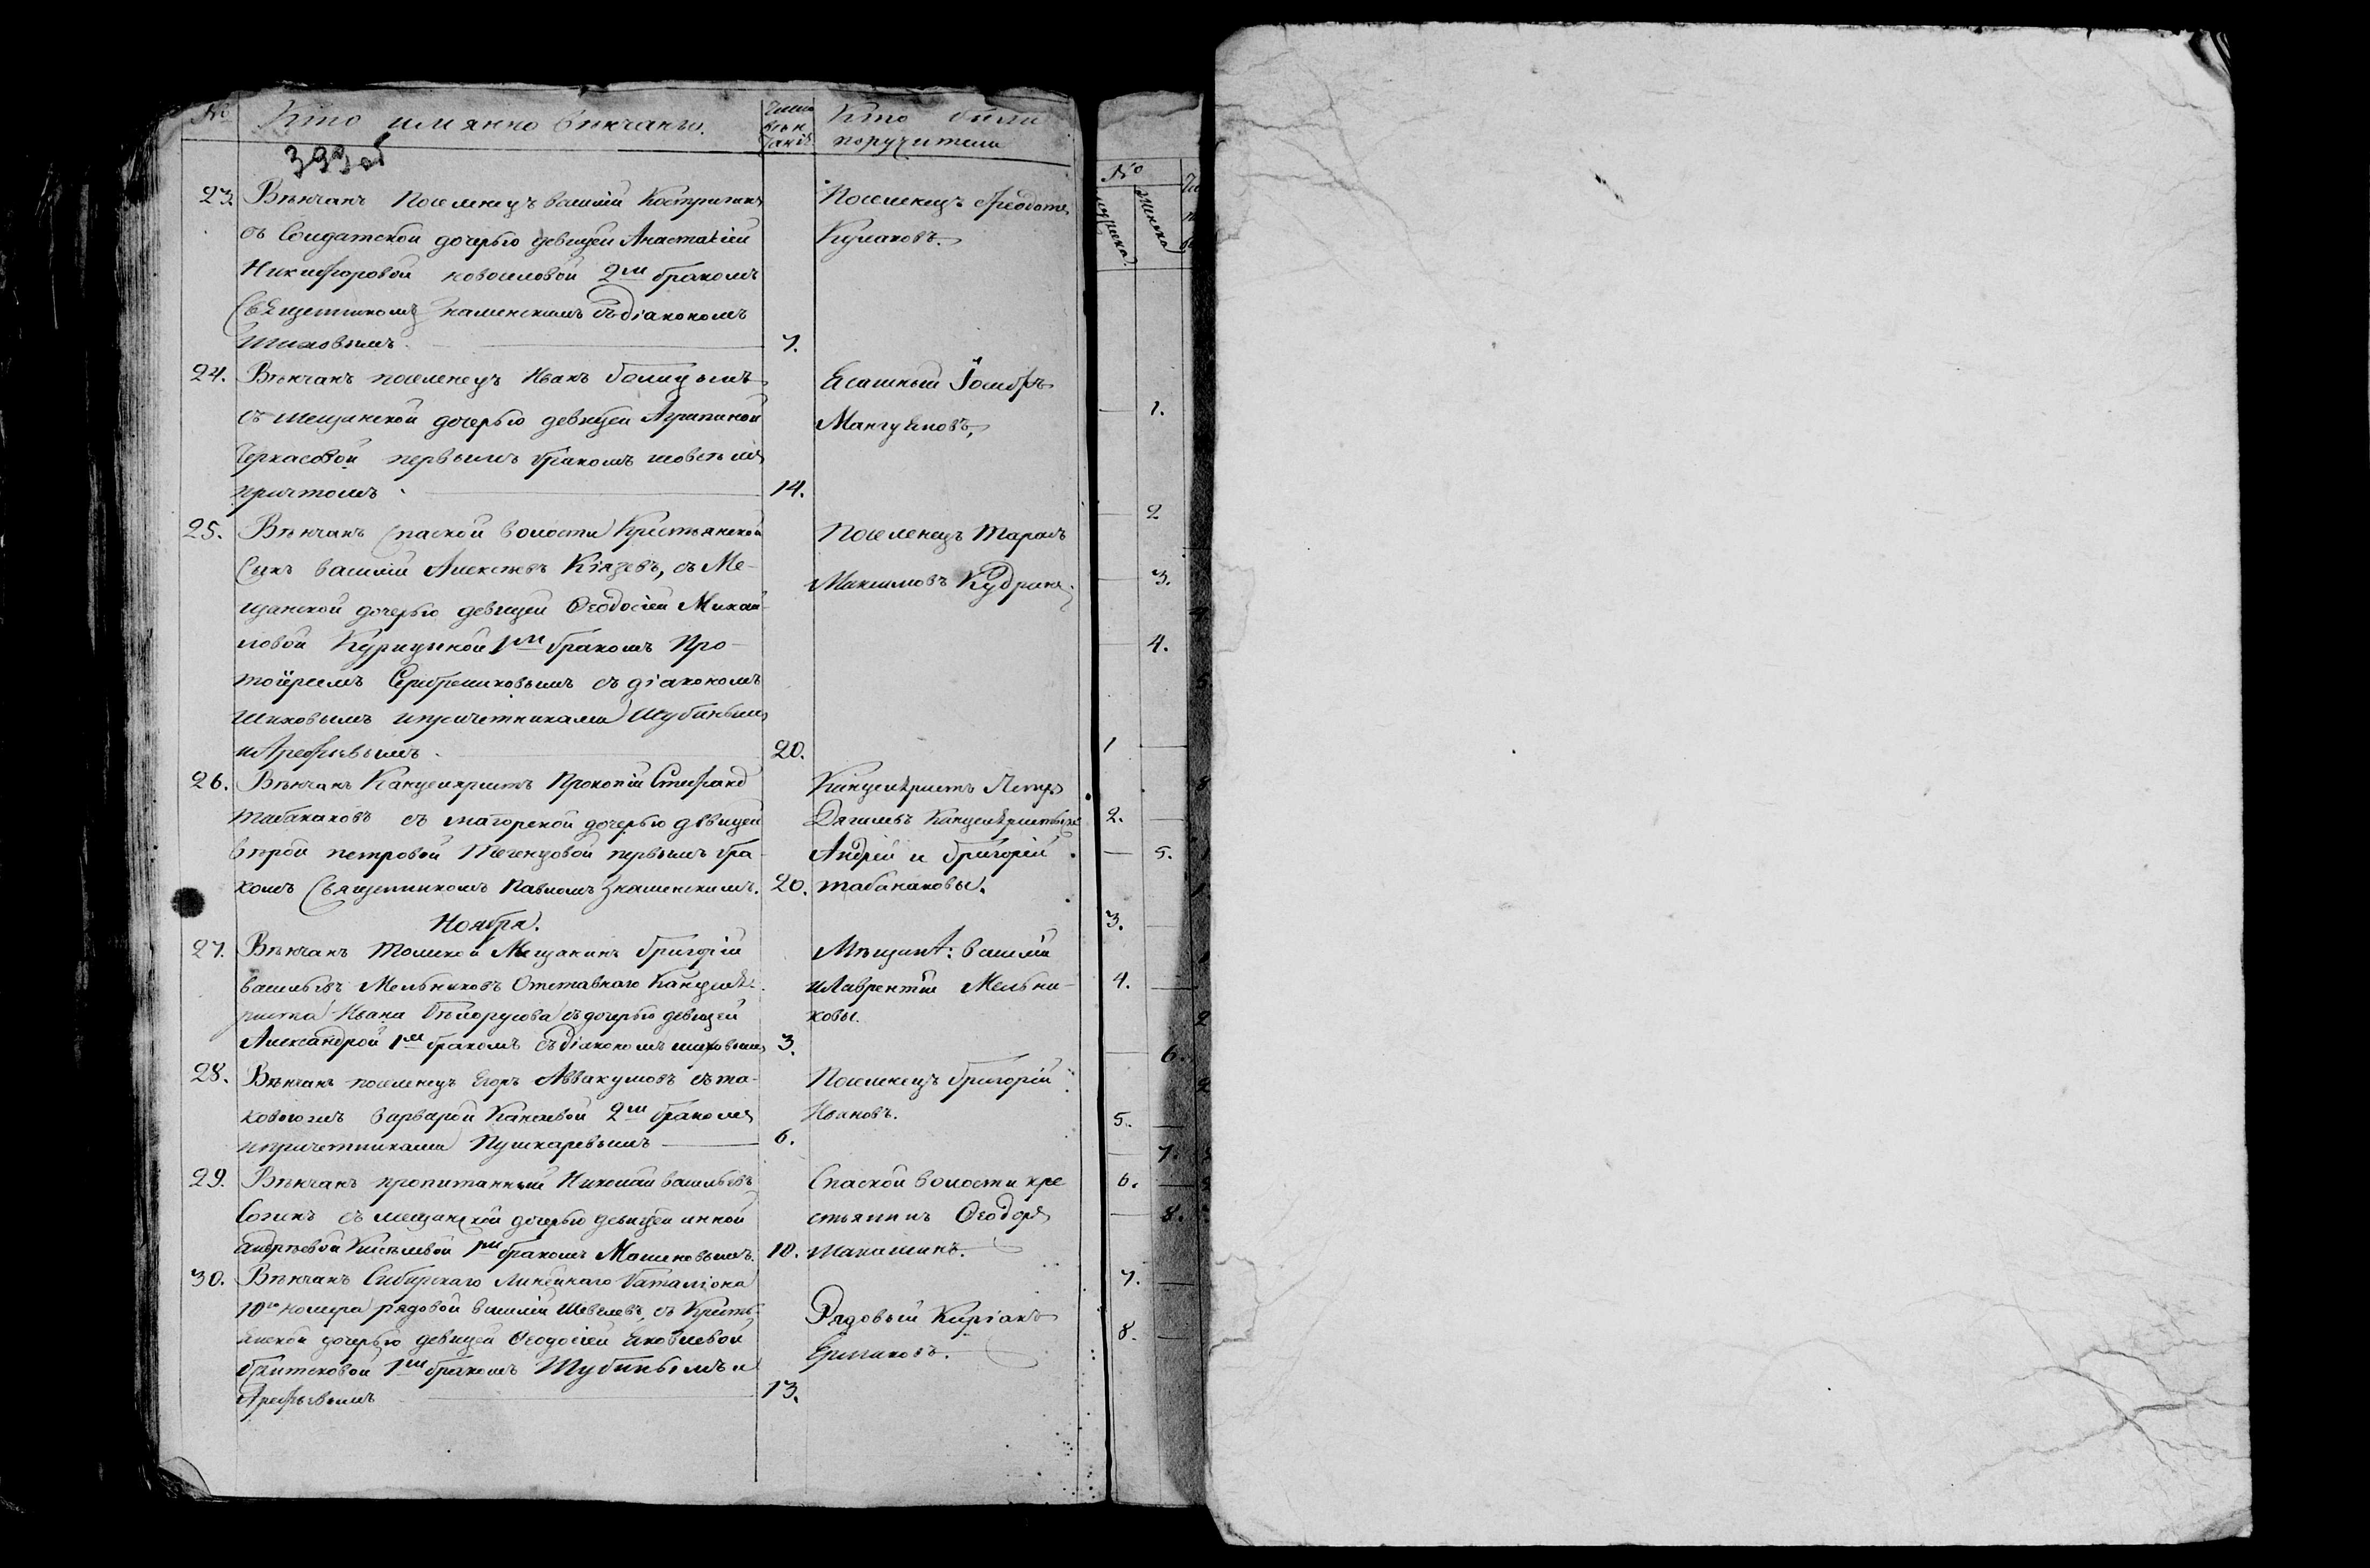 № Кто имянно венчанъ. Число венчанiя Кто были поручители
393об
23. Венчанъ Поселенецъ Василiй Костригинъ
съ Солдатской дочерью девицей Анастасiей
Никифоровой новоселовой 2мъ бракомъ
Священникомъ Знаменскимъ съ дiакономъ
Шиховымъ. 7.
Поселенецъ Феодотъ
Кулаковъ.
24. Венчанъ поселенецъ Иванъ Голицынъ
съ мещанской дочерью девицей Агрипиной
Черкасовой первымъ бракомъ
причтомъ. 14.
Ясашный Iосифъ
25. Венчанъ Спаской волости Крестьянской
Сынъ Василiй Алексеевъ Князевъ, съ Ме-
щанской дочерью девицей Ѳеодосiей Михай-
ловой Курицыной 1мъ бракомъ Про-
тоiереемъ Серебрениковымъ съ дiакономъ
Шиховымъ и причетниками Шубинымъ
и Арефьевымъ. 20.
Поселенецъ Тарасъ
Максимовъ
26. Венчанъ Канцеляристъ Прокопiй Стефанов
Табанаковъ съ маiорской дочерью девицей
Верой петровой первымъ бра-
комъ Священникомъ Павломъ Знаменскимъ. 20.
Канцеляристъ Петръ
Дягилевъ
Андрей и Григорiй
Табанаковы.
Ноября.
27. Венчанъ Томской Мещанинъ Григорiй
Васильевъ Мельниковъ Отставнаго Канцеля-
риста Ивана Белорусова съ дочерью девицей
Александрой 1мъ бракомъ съ дiакономъ Шиховымъ 3.
Мещан: Василiй
и Лаврентiй Мельни-
ковы.
28. Венчанъ поселенецъ Егоръ Аввакумовъ съ та-
ковоюжъ Варварой 2мъ бракомъ
причетниками Пушкаревымъ 6.
Поселенецъ Григорiй
Ивановъ.
29. Венчанъ пропитанный Николай Васильевъ
съ мещанской дочерью девицей Анной
Андреевой Киселевой 1мъ бракомъ 10.
Спаской волости кре
стьянинъ Ѳеодоръ
30. Венчанъ Сибирскаго Линейнаго Баталiона
10го номера рядовой Василiй Шевелевъ, съ Кресть-
янской дочерью девицей Ѳеодосiей Яковлевой
1мъ бракомъ Шубинымъ и
Арефьевымъ 13.
Рядовый Кирiакъ
Ермаковъ.
№
1.
2
3.
4.
1
2.
5.
3.
4.
6.
5.
7.
6.
8.
7.
8.